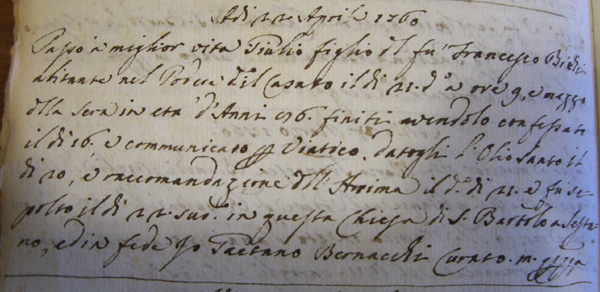 Adi 22 Aprile 1760
Passò a miglior vita Giulio figlio del fu Francesco
abitante nel Podere del Casato il di 21. do a ore 9, e mezza
della sera in età d'Anni 76. finiti avendolo confessato
il di 16. e communicato p Viatico. datogli l'Olio Santo il
di 20, e raccomandazione dell Anima il do di 21. e fu se-
polto il di 22 sudo in questa Chiesa di S. Bartolo a Sesta-
no, ed in fede Io Gaetano Bernacchi Curato. m.